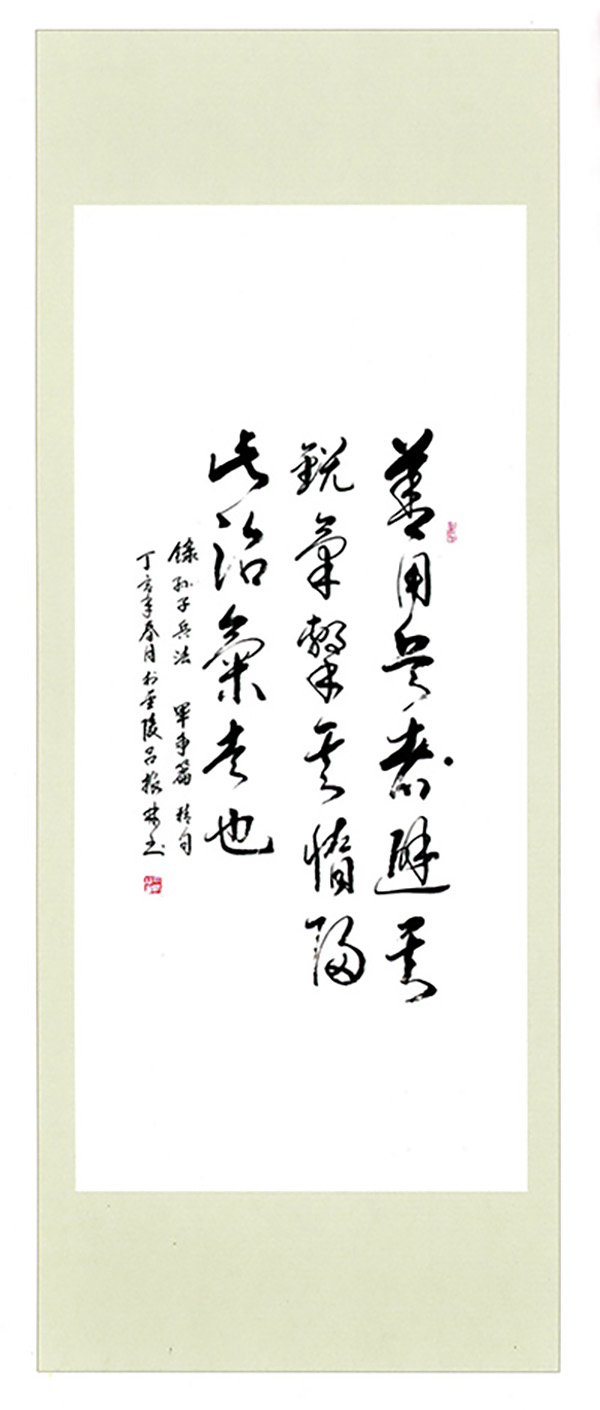 善用兵者避其
銳氣擊其惰歸
此治氣者也
錄孫子兵法 軍爭篇 精句
丁亥年春月於金陵呂振林書